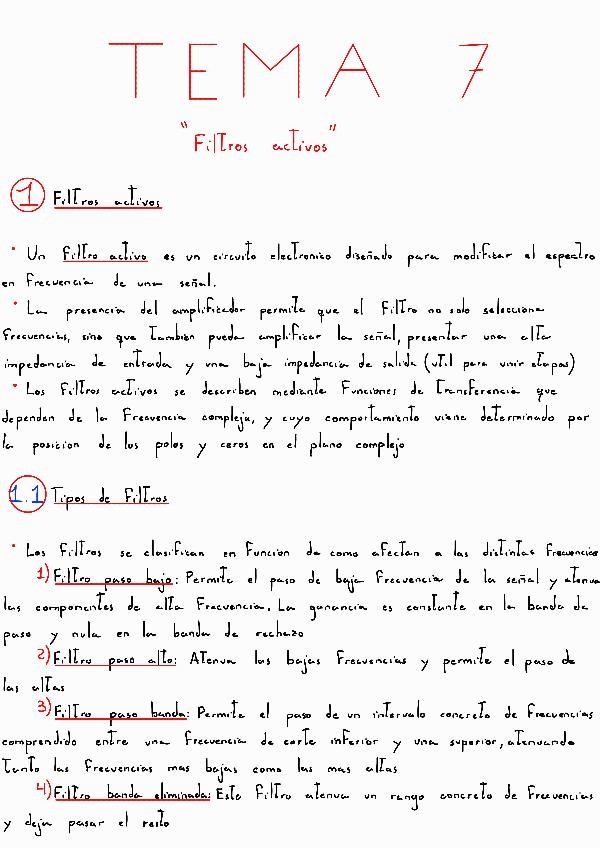 TEMA 7
"Filtros activos"
1 Filtros activos
• Un filtro activo es un circuito electronico diseñado para modificar el espectro
en frecuencia de una señal.
• La presencia del amplificador permite que el filtro no solo seleccione
frecuencias, sino que tambien pueda amplificar la señal, presentar una alta
impedancia de entrada y una baja impedancia de salida (util para unir etapas)
• Los filtros activos se describen mediante funciones de transferencia que
dependen de la frecuencia compleja, y cuyo comportamiento viene determinado por
la posicion de los polos y ceros en el plano complejo
1.1 Tipos de filtros
• Los filtros se clasifican en funcion de como afectan a las distintas frecuencias
1) Filtro paso bajo: Permite el paso de baja frecuencia de la señal y atenua
las componentes de alta frecuencia. La ganancia es constante en la banda de
paso y nula en la banda de rechazo
2) Filtro paso alto: Atenua las bajas frecuencias y permite el paso de
las altas
3) Filtro paso banda: Permite el paso de un intervalo concreto de frecuencias
comprendido entre una frecuencia de corte inferior y una superior, atenuando
tanto las frecuencias mas bajas como las mas altas
4) Filtro banda eliminada: Este filtro atenua un rango concreto de frecuencias
y deja pasar el resto